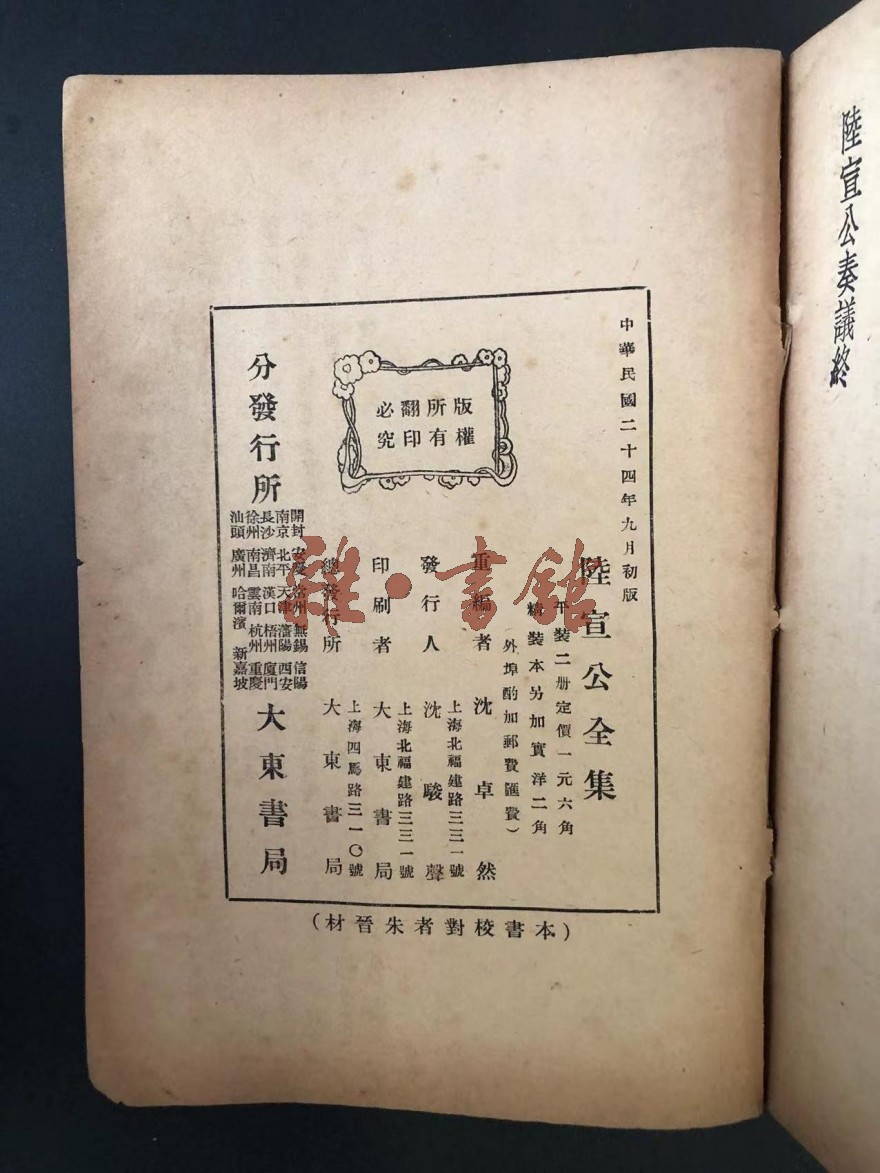 陸宣公奏議終
中華民國二十四年九月初版
陸宣公全集
平裝二册定價一元六角
精裝本另加實洋二角
外埠酌加郵費匯費）
重編者 沈卓然
上海北福建路三三一號
發行人 沈駿聲
上海北福建路三三一號
印刷者 大東書局
上海四馬路三一〇號
總發行所 大東書局
版權
所有
翻印
必究
分發行所
開封 安慶 徐州 無錫 信陽
南京 北平 天津 瀋陽 西安
長沙 濟南 漢口 梧州 廈門
徐州 南昌 雲南 杭州 重慶
汕頭 廣州 哈爾濱 新嘉坡
大東書局
（本書校對者朱晉材）
雜·書館